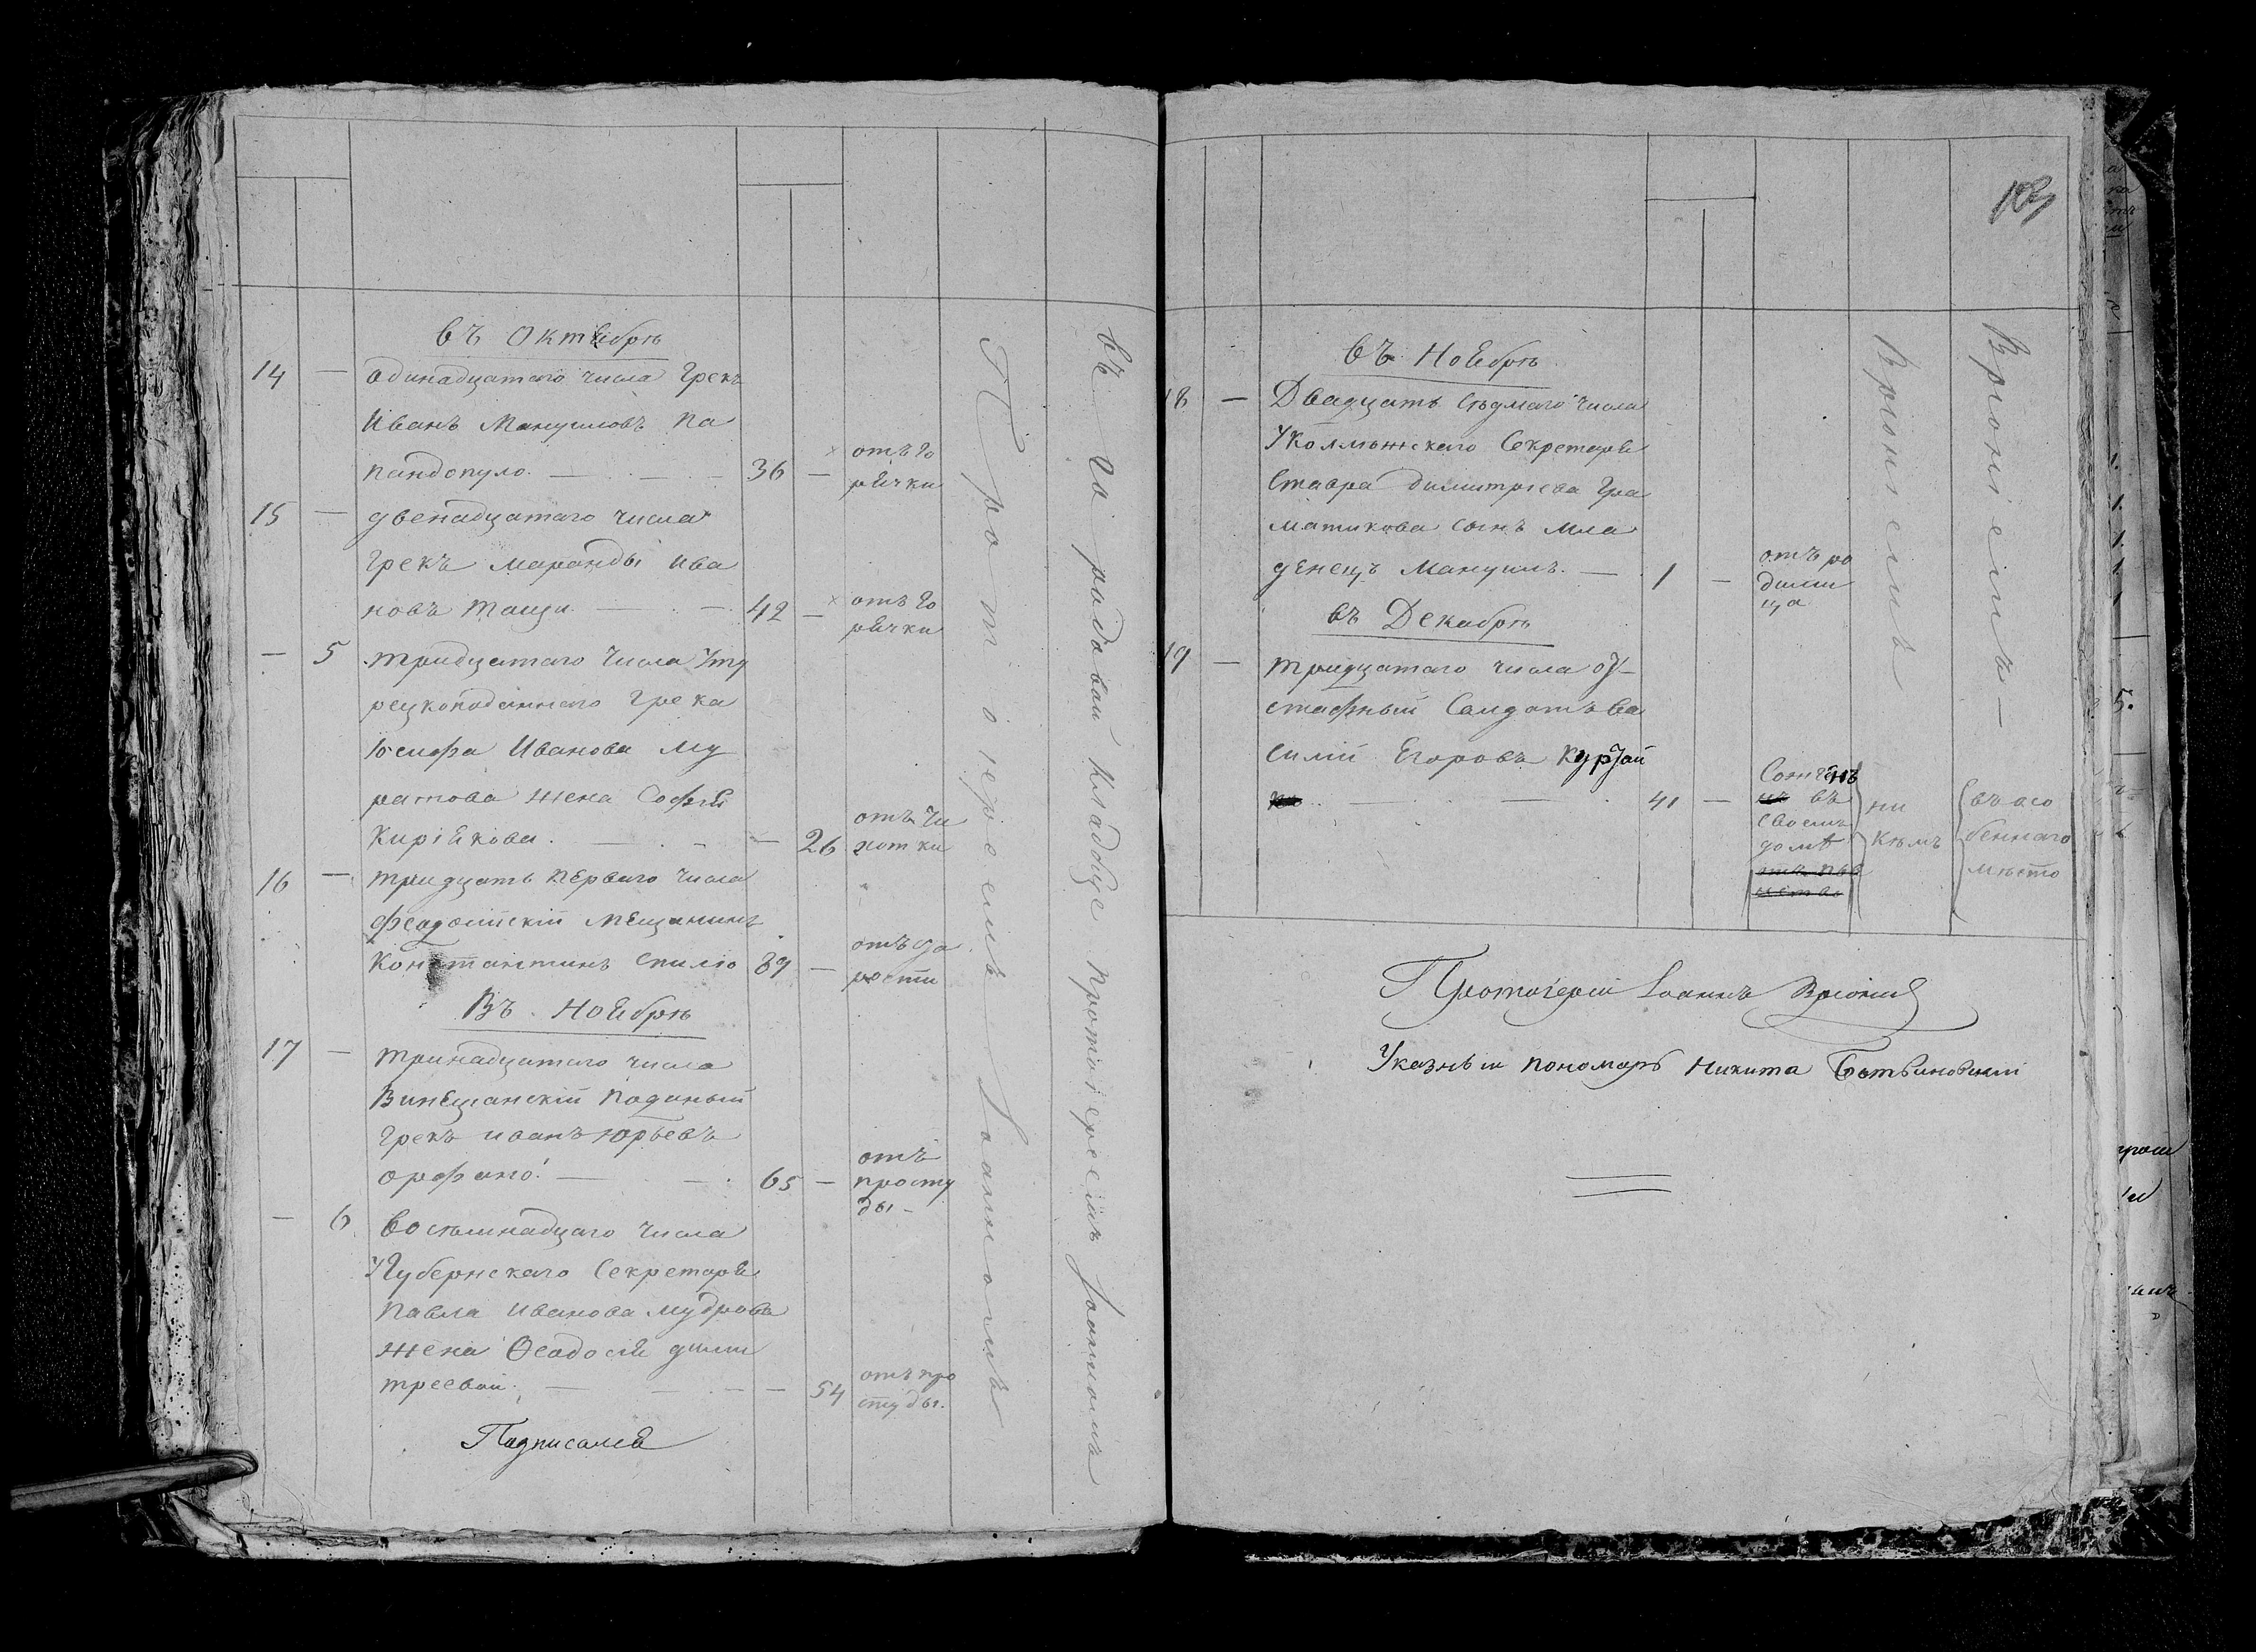 въ Октябрѣ
14 — одинадцатого числа Грекъ
Иванъ Мануиловъ Па
пандопуло. — 36 — отъ го
рячки
15 — двенадцатаго числа
грекъ Маранды Ива
новъ Тащи — 42 — отъ го
рячки
— 5 тридцатаго числа у ту
рецкоподданнаго Грека
Іосифа Иванова Му
ратова жена Софія
Киріякова. — 26 отъ чи
хотки
16 — тридцать перваго числа
Феодосійскій мещанинъ
Константинъ Спиліо 89 — отъ ста
рости
Въ Ноябрѣ
17 — тринадцатаго числа
Винецианскій Поданый
грекъ иванъ Юрьевъ
орфано. — 65 — отъ
просту
ды —
— 6 восемнадцаго числа
У Губернскаго Секретаря
Павла Иванова Мудрова
жена Ѳеодосія дими
треевой. — 54 отъ про
студы.
Подписался
Протоіереемъ Іоанномъ
въ городовай кладбце протоіереемъ Іоанномъ
103
въ Ноябрѣ
18 — Двадцать седмаго числа
У Коллежскаго Секретаря
Ставра Димитріева Гра
матикова сынъ мла
денецъ Мануилъ. — 1 — отъ ро
дими
ца
въ Декабрѣ
19 — тридцатаго числа от
ставный Салдатъ Ва
силій Егоровъ Курзай
41 — Сожженъ
въ
своемъ
домѣ
ни
кѣмъ
въ осо
беннаго
мѣсто
Вріонiемъ
Вріоніемъ —
Протоіерей Іоаннъ Вріоній
Указный пономарь Никита Ботвиновский